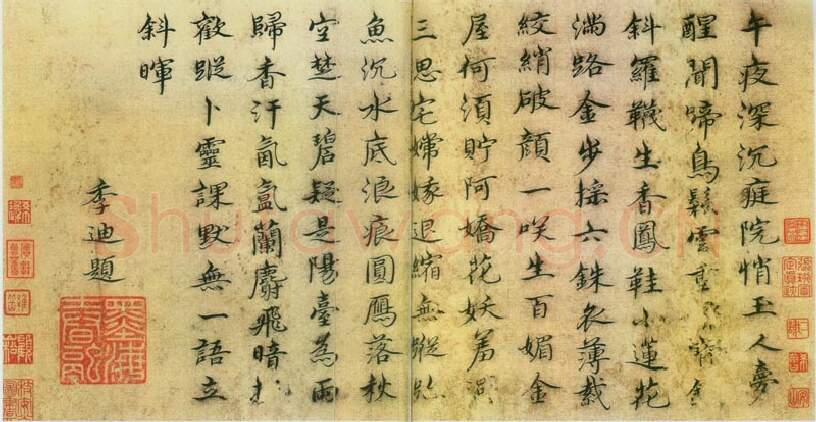 午夜深沉庭院悄玉人夢
醒聞啼鳥雲
斜羅襪生香鳳鞋小蓮花
滿路金步採六銖衣薄裁
絞綃破顏一咲生百媚金
屋何須貯阿嬌花妖羞
三思宅嫦娥退縮無蹤
魚沉水底浪痕圓鴈落秋
空楚天碧疑是陽臺為雨
歸香汗氤氳蘭麝飛暗
歡蹤卜靈課默無一語立
斜暉
季迪題
Shufawang.Cn